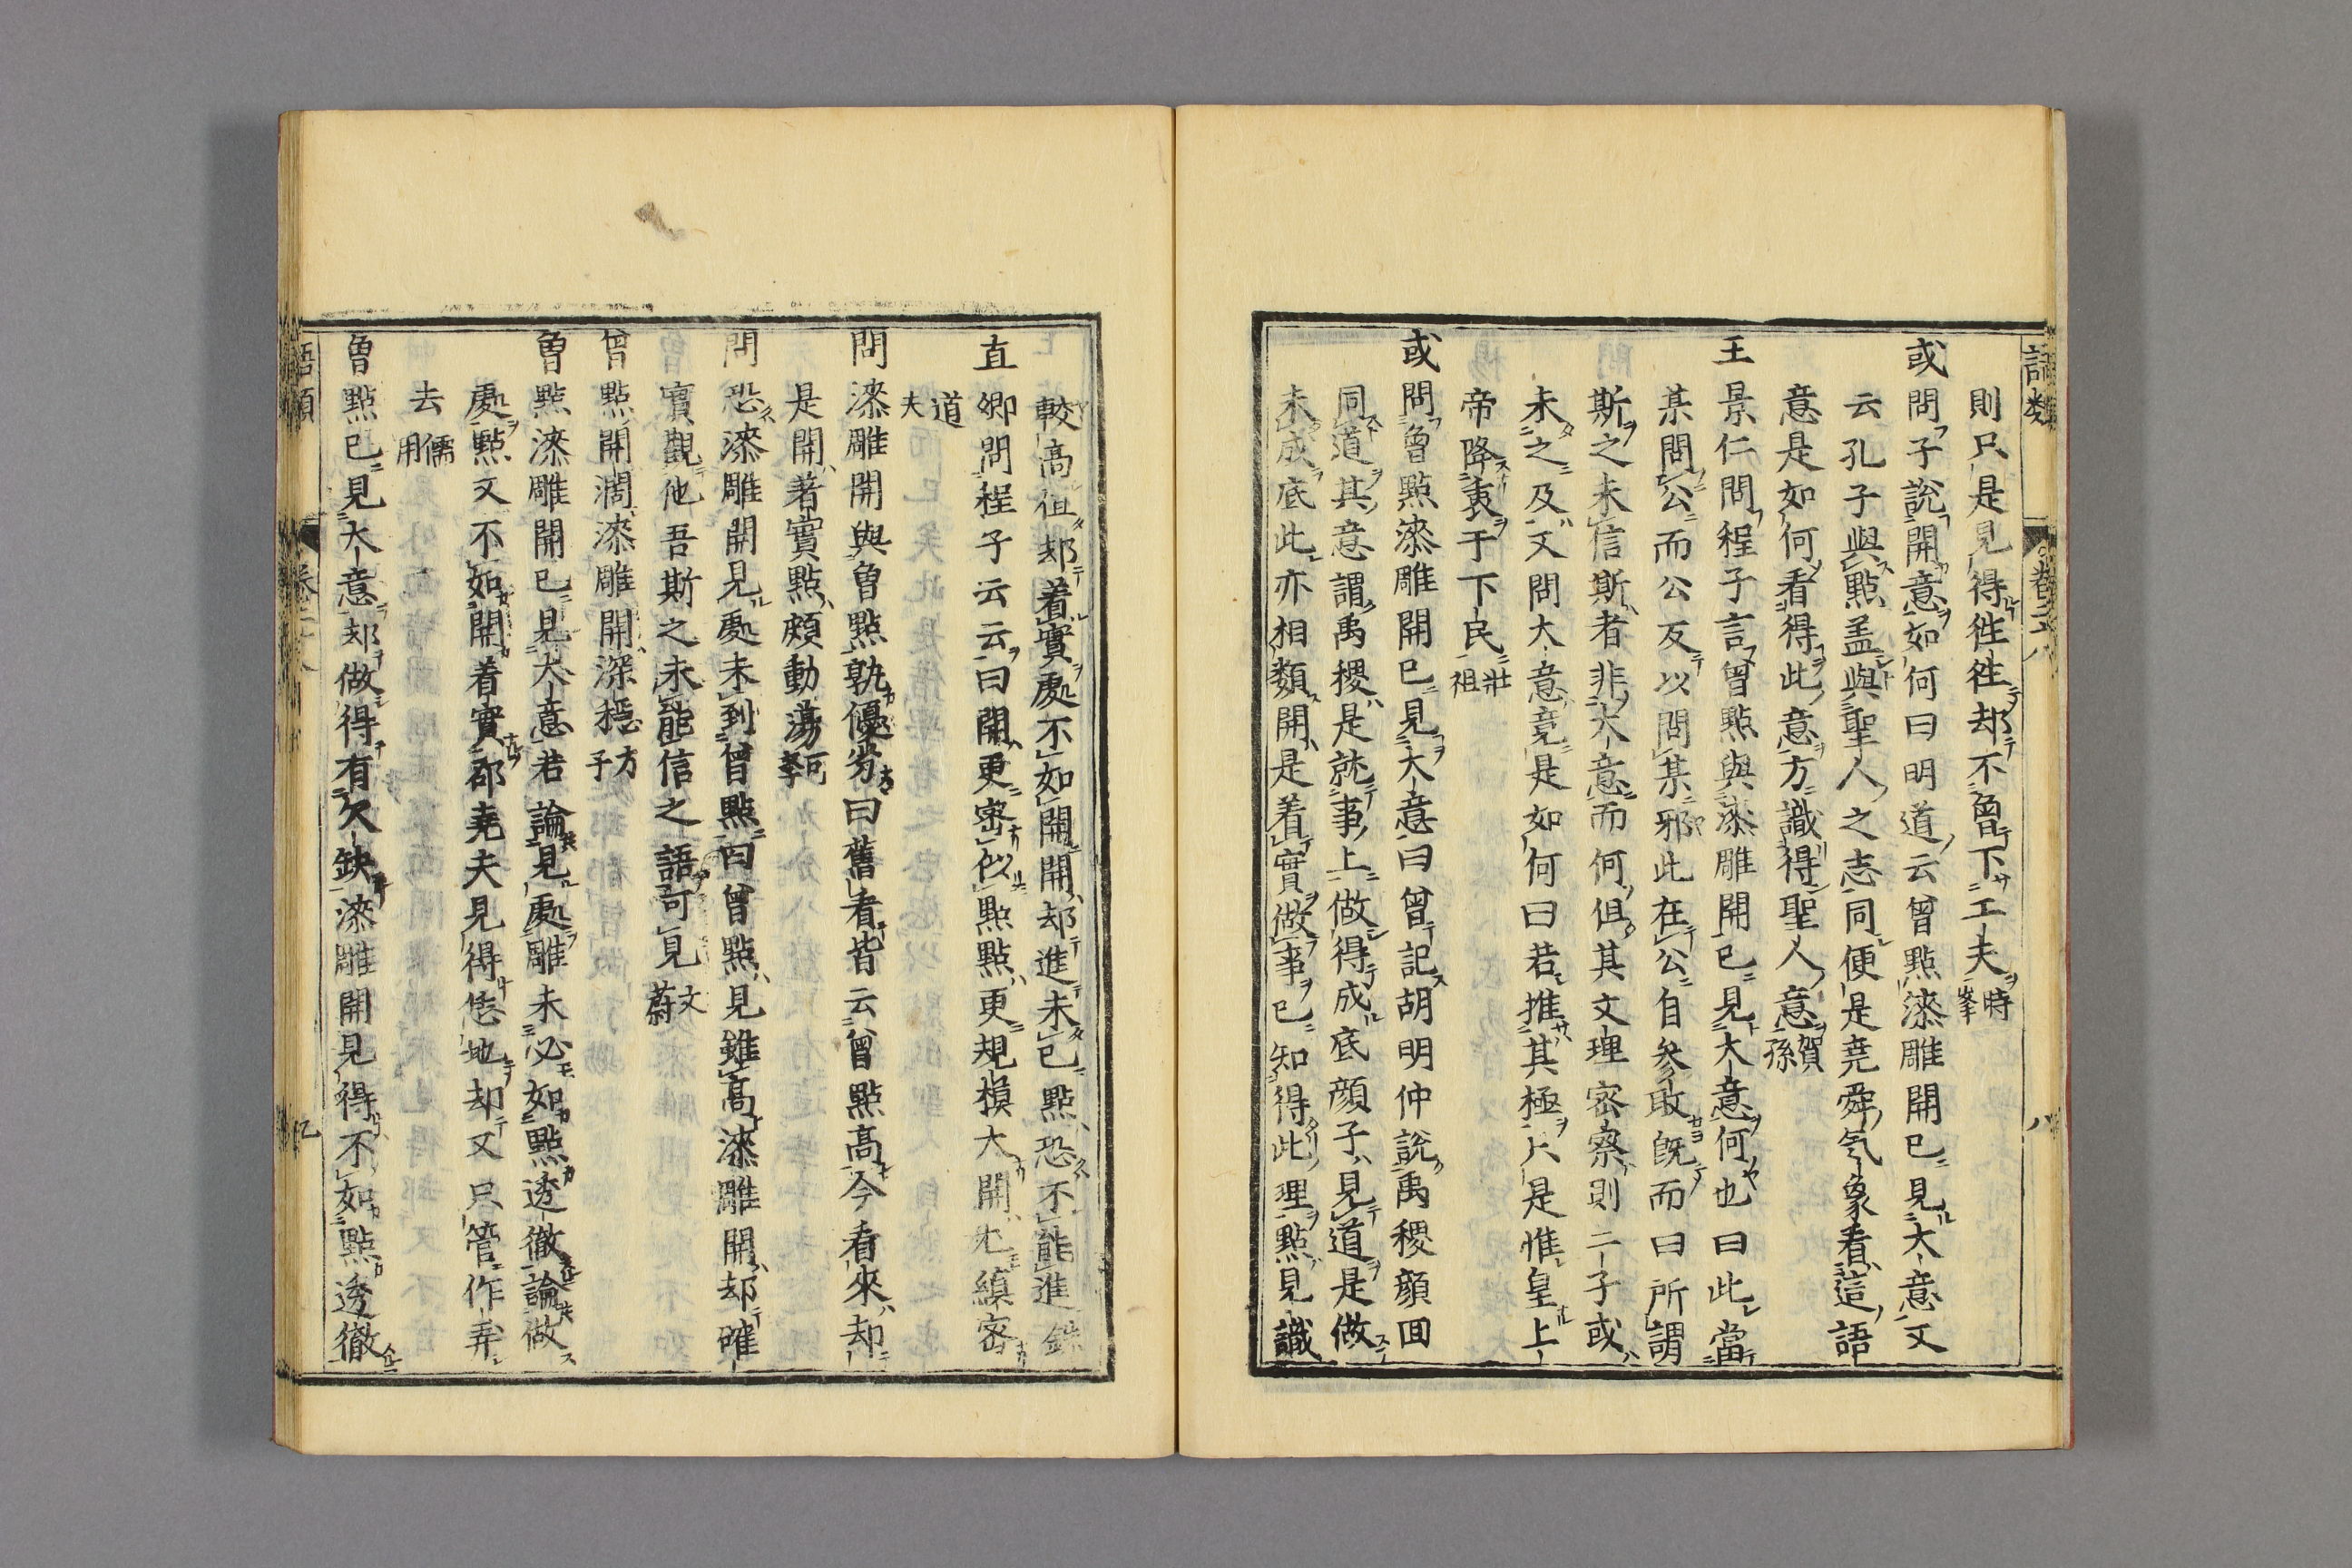 語類
卷二十八
八
則只是見得徃徃却不曾下工夫時
峯
或問子說開意如何曰明道云曾點漆雕開已見大意又
云孔子與點盖與聖人之志同便是堯舜氣象看這語
意是如何看得此意方識得聖人意賀
孫
王景仁問程子言曾點與漆雕開已見大意何也曰此當
某問公而公反以問某邪此在公自參取既而曰所謂
斯之未信斯者非大意而何但其文理密察則二子或
未之及又問大意竟是如何曰若推其極只是惟皇上
帝降衷于下民壯
祖
或問曾點漆雕開已見大意曰曾記胡明仲說禹稷顔回
同道其意謂禹稷是就事上做得成底顔子見道是做
未成底此亦相類開是着實做事已知得此理點見識
較高但却着實處不如開開却進未已點恐不能進銖
直卿問程子云云曰開更密似點點更規模大開尤縝密
道
夫
問漆雕開與曾點孰優劣曰舊看皆云曾點高今看來却
是開著實點頗動蕩可
學
問恐漆雕開見處未到曾點曰曾點見雖高漆雕開却確
實觀他吾斯之未能信之語可見文
蔚
曾點開濶漆雕開深穏方
子
曾點漆雕開已見大意若論見處雕未必如點透徹論做
處點又不如開着實邵堯夫見得恁地却又只管作弄
去儒
用
曾點已見大意却做得有欠缺漆雕開見得不如點透徹
語類
卷二十八
九